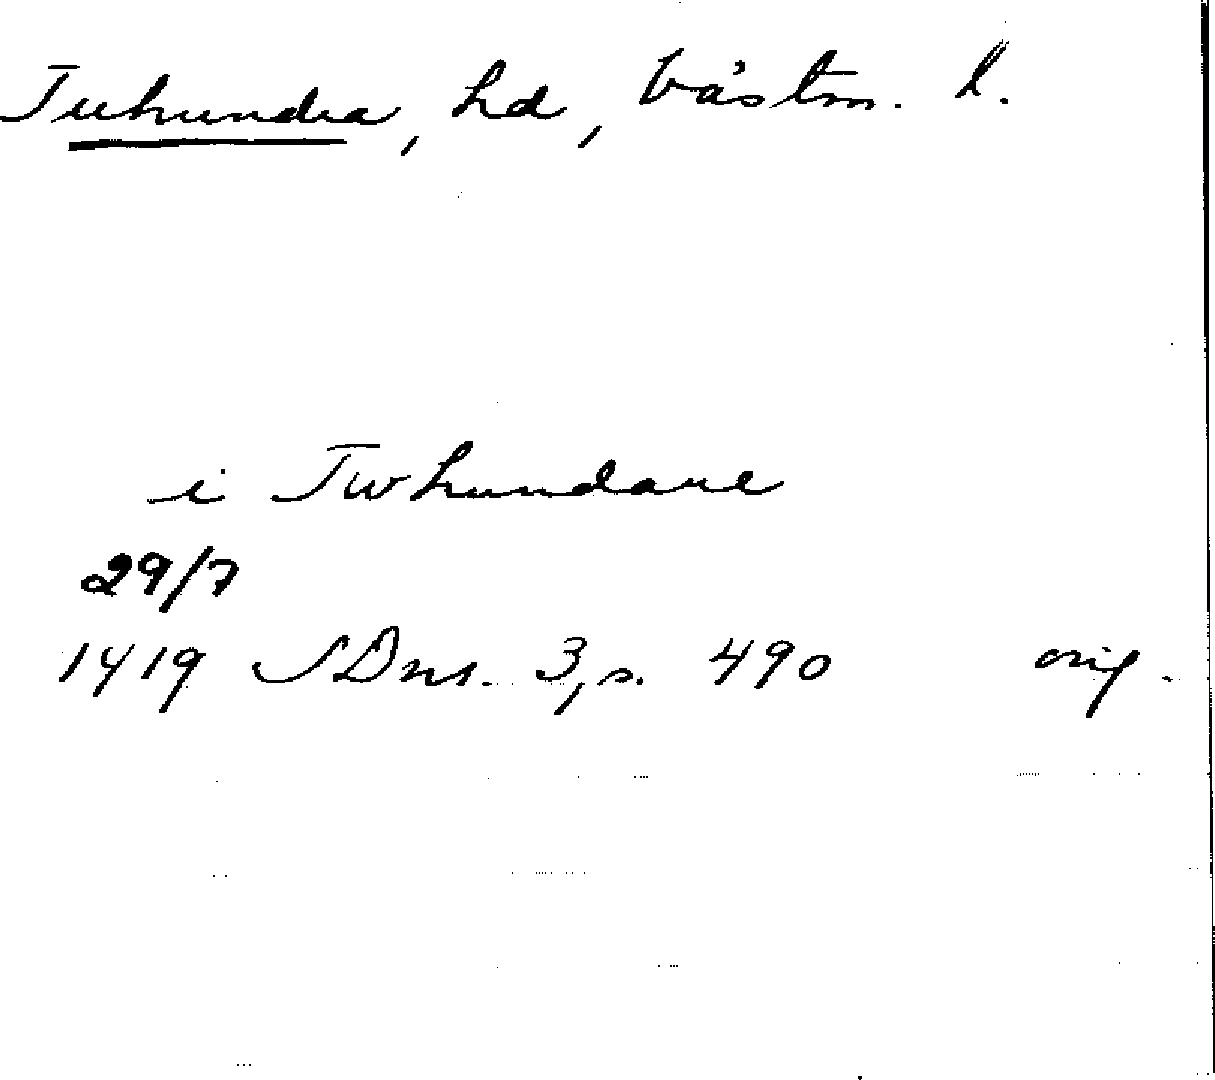 Tuhundra, hd, Västm. l.
i Twhundare
29/7
1419 SDns. 3, s. 490 orig.